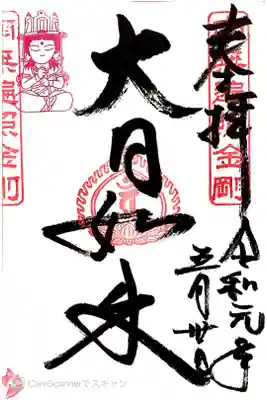 奉拝
令和元年
五月廿日
大日如来
金剛
CamScannerでスキャン